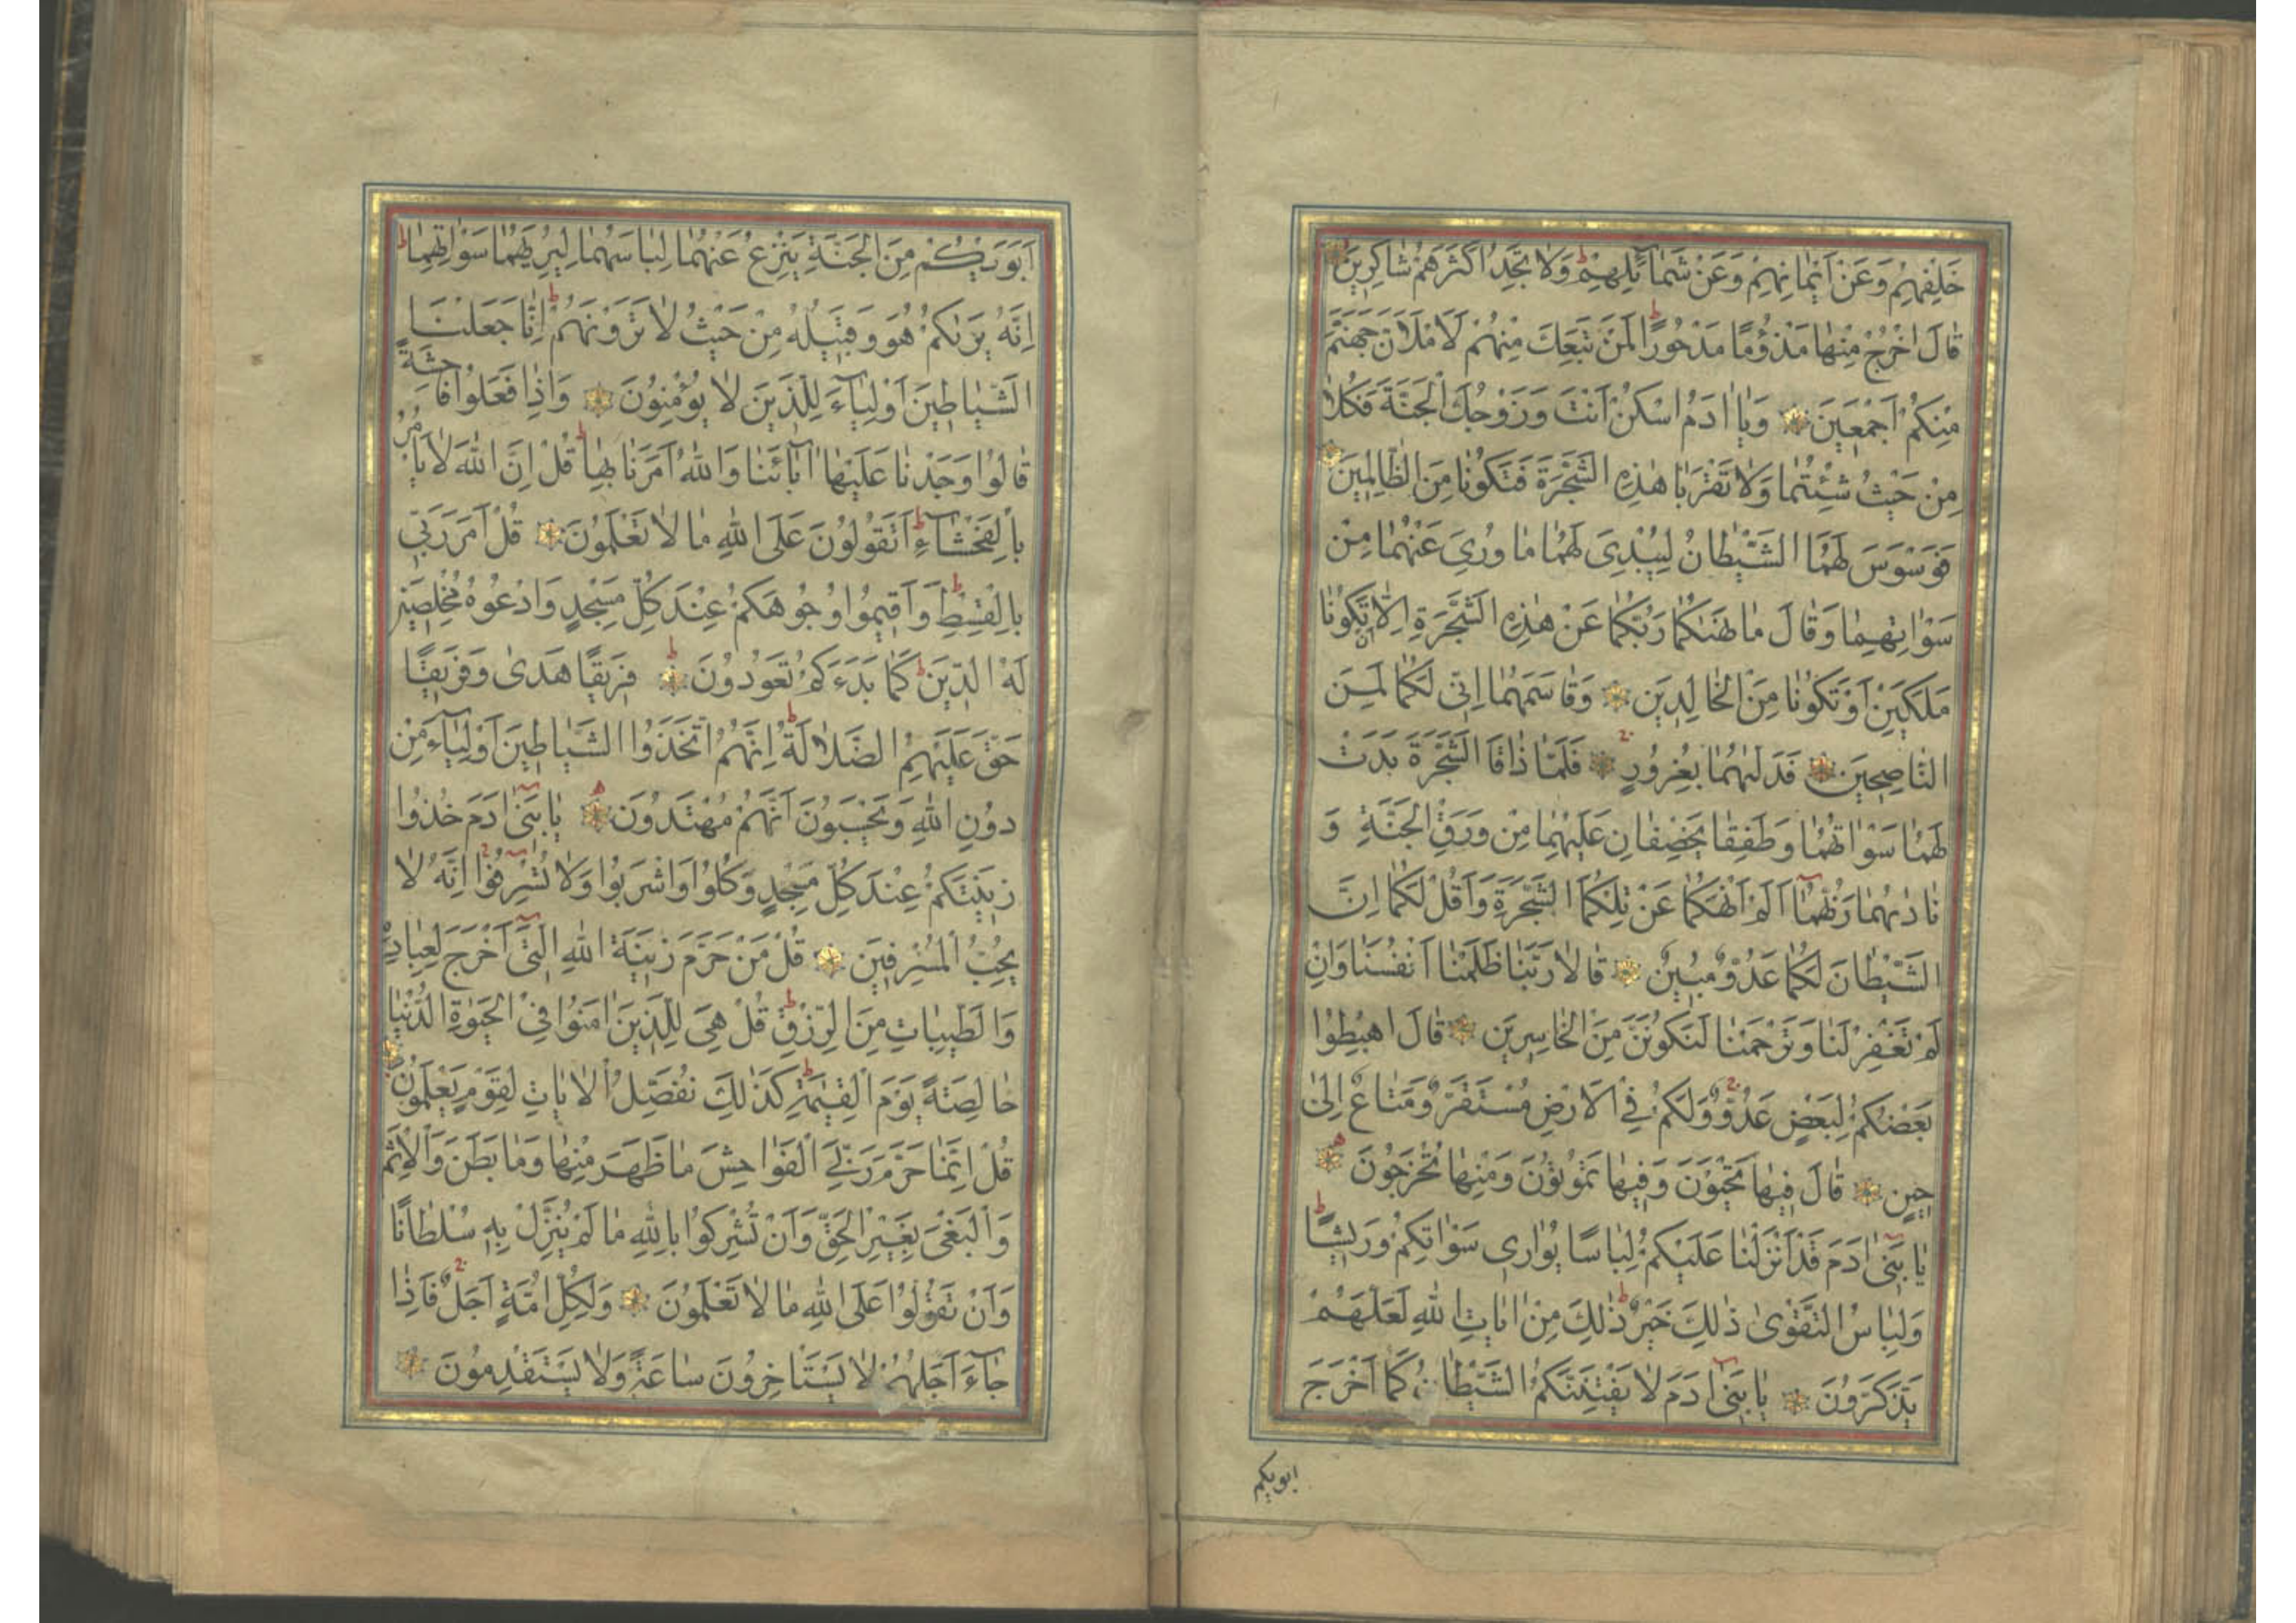 خَلْفِهِمْ وَعَنْ اَيْمَانِهِمْ وَعَنْ شَمَائِلِهِمْ ط وَلَا تَجِدُ اَكْثَرَهُمْ شَاكِرِينَ
قَالَ اخْرُجْ مِنْهَا مَذْؤُمًا مَدْحُورًا ط لَمَنْ تَبِعَكَ مِنْهُمْ لَاَمْلَاَنَّ جَهَنَّمَ
مِنْكُمْ اَجْمَعِينَ وَيَا اٰدَمُ اسْكُنْ اَنْتَ وَزَوْجُكَ الْجَنَّةَ فَكُلَا
مِنْ حَيْثُ شِئْتُمَا وَلَا تَقْرَبَا هٰذِهِ الشَّجَرَةَ فَتَكُونَا مِنَ الظَّالِمِينَ
فَوَسْوَسَ لَهُمَا الشَّيْطَانُ لِيُبْدِىَ لَهُمَا مَا وُرِىَ عَنْهُمَا مِنْ
سَوْاٰتِهِمَا وَقَالَ مَا نَهٰىكُمَا رَبُّكُمَا عَنْ هٰذِهِ الشَّجَرَةِ اِلَّا اَنْ تَكُونَا
مَلَكَيْنِ اَوْ تَكُونَا مِنَ الْخَالِدِينَ وَقَاسَمَهُمَا اِنِّى لَكُمَا لَمِنَ
النَّاصِحِينَ فَدَلّٰيهُمَا بِغُرُورٍ فَلَمَّا ذَاقَا الشَّجَرَةَ بَدَتْ
لَهُمَا سَوْاٰتُهُمَا وَطَفِقَا يَخْصِفَانِ عَلَيْهِمَا مِنْ وَرَقِ الْجَنَّةِ وَ
نَادٰيهُمَا رَبُّهُمَا اَلَمْ اَنْهَكُمَا عَنْ تِلْكُمَا الشَّجَرَةِ وَاَقُلْ لَكُمَا اِنَّ
الشَّيْطَانَ لَكُمَا عَدُوٌّ مُبِينٌ قَالَا رَبَّنَا ظَلَمْنَا اَنْفُسَنَا وَاِنْ
لَمْ تَغْفِرْ لَنَا وَتَرْحَمْنَا لَنَكُونَنَّ مِنَ الْخَاسِرِينَ قَالَ اهْبِطُوا
بَعْضُكُمْ لِبَعْضٍ عَدُوٌّ وَلَكُمْ فِى الْاَرْضِ مُسْتَقَرٌّ وَمَتَاعٌ اِلٰى
حِينٍ قَالَ فِيهَا تَحْيَوْنَ وَفِيهَا تَمُوتُونَ وَمِنْهَا تُخْرَجُونَ
يَا بَنِى اٰدَمَ قَدْ اَنْزَلْنَا عَلَيْكُمْ لِبَاسًا يُوَارِى سَوْاٰتِكُمْ وَرِيشًا ط
وَلِبَاسُ التَّقْوٰى ذٰلِكَ خَيْرٌ ط ذٰلِكَ مِنْ اٰيَاتِ اللهِ لَعَلَّهُمْ
يَذَّكَّرُونَ يَا بَنِى اٰدَمَ لَا يَفْتِنَنَّكُمُ الشَّيْطَانُ كَمَا اَخْرَجَ
ابويكم
اَبَوَيْكُمْ مِنَ الْجَنَّةِ يَنْزِعُ عَنْهُمَا لِبَاسَهُمَا لِيُرِيَهُمَا سَوْاٰتِهِمَا ط
اِنَّهُ يَرٰيكُمْ هُوَ وَقَبِيلُهُ مِنْ حَيْثُ لَا تَرَوْنَهُمْ ط اِنَّا جَعَلْنَا
الشَّيَاطِينَ اَوْلِيَآءَ لِلَّذِينَ لَا يُؤْمِنُونَ وَاِذَا فَعَلُوا فَاحِشَةً
قَالُوا وَجَدْنَا عَلَيْهَا اٰبَآئَنَا وَاللهُ اَمَرَنَا بِهَا ط قُلْ اِنَّ اللهَ لَا يَاْمُرُ
بِالْفَحْشَآءِ ط اَتَقُولُونَ عَلَى اللهِ مَا لَا تَعْلَمُونَ قُلْ اَمَرَ رَبِّى
بِالْقِسْطِ ط وَاَقِيمُوا وُجُوهَكُمْ عِنْدَ كُلِّ مَسْجِدٍ وَادْعُوهُ مُخْلِصِينَ
لَهُ الدِّينَ ط كَمَا بَدَءَكُمْ تَعُودُونَ ط فَرِيقًا هَدٰى وَفَرِيقًا
حَقَّ عَلَيْهِمُ الضَّلَالَةُ ط اِنَّهُمُ اتَّخَذُوا الشَّيَاطِينَ اَوْلِيَآءَ مِنْ
دُونِ اللهِ وَيَحْسَبُونَ اَنَّهُمْ مُهْتَدُونَ يَا بَنِى اٰدَمَ خُذُوا
زِينَتَكُمْ عِنْدَ كُلِّ مَسْجِدٍ وَكُلُوا وَاشْرَبُوا وَلَا تُسْرِفُوا اِنَّهُ لَا
يُحِبُّ الْمُسْرِفِينَ قُلْ مَنْ حَرَّمَ زِينَةَ اللهِ الَّتِى اَخْرَجَ لِعِبَادِهِ
وَالطَّيِّبَاتِ مِنَ الرِّزْقِ ط قُلْ هِىَ لِلَّذِينَ اٰمَنُوا فِى الْحَيٰوةِ الدُّنْيَا
خَالِصَةً يَوْمَ الْقِيٰمَةِ ط كَذٰلِكَ نُفَصِّلُ الْاٰيَاتِ لِقَوْمٍ يَعْلَمُونَ
قُلْ اِنَّمَا حَرَّمَ رَبِّىَ الْفَوَاحِشَ مَا ظَهَرَ مِنْهَا وَمَا بَطَنَ وَالْاِثْمَ
وَالْبَغْىَ بِغَيْرِ الْحَقِّ وَاَنْ تُشْرِكُوا بِاللهِ مَا لَمْ يُنَزِّلْ بِهِ سُلْطَانًا
وَاَنْ تَقُولُوا عَلَى اللهِ مَا لَا تَعْلَمُونَ وَلِكُلِّ اُمَّةٍ اَجَلٌ فَاِذَا
جَآءَ اَجَلُهُمْ لَا يَسْتَاْخِرُونَ سَاعَةً وَلَا يَسْتَقْدِمُونَ